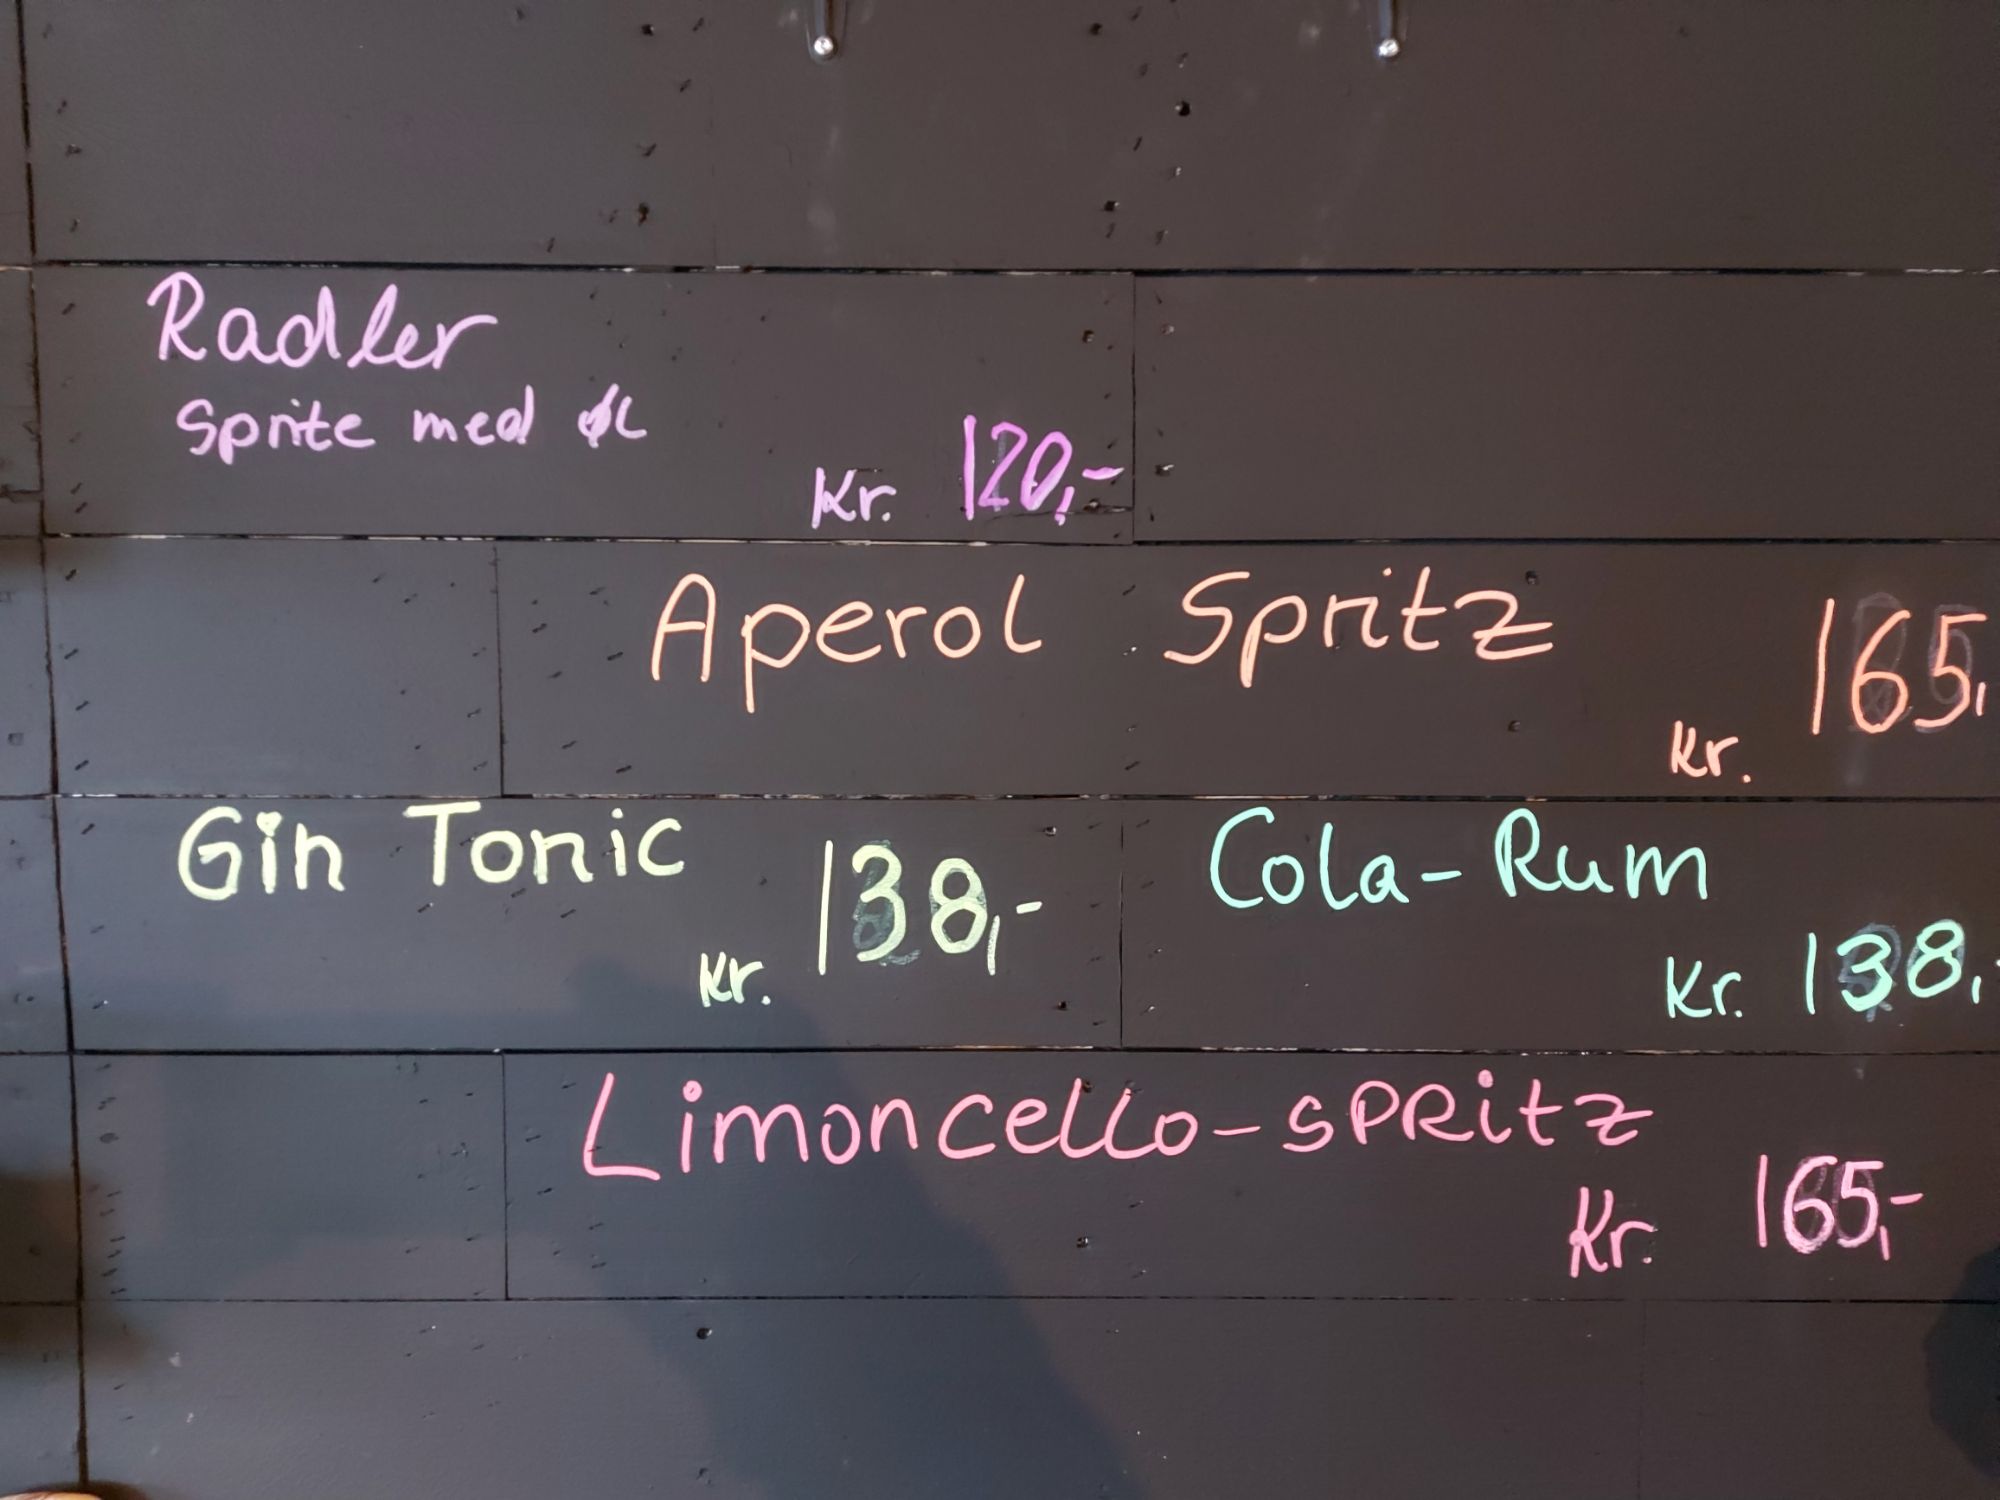 Radler
Sprite med øl
Kr. 120,-
Aperol Spritz
Kr. 165,
Gin Tonic
Kr. 138,-
Cola-Rum
Kr. 138,-
Limoncello-sPRitz
Kr. 165,-